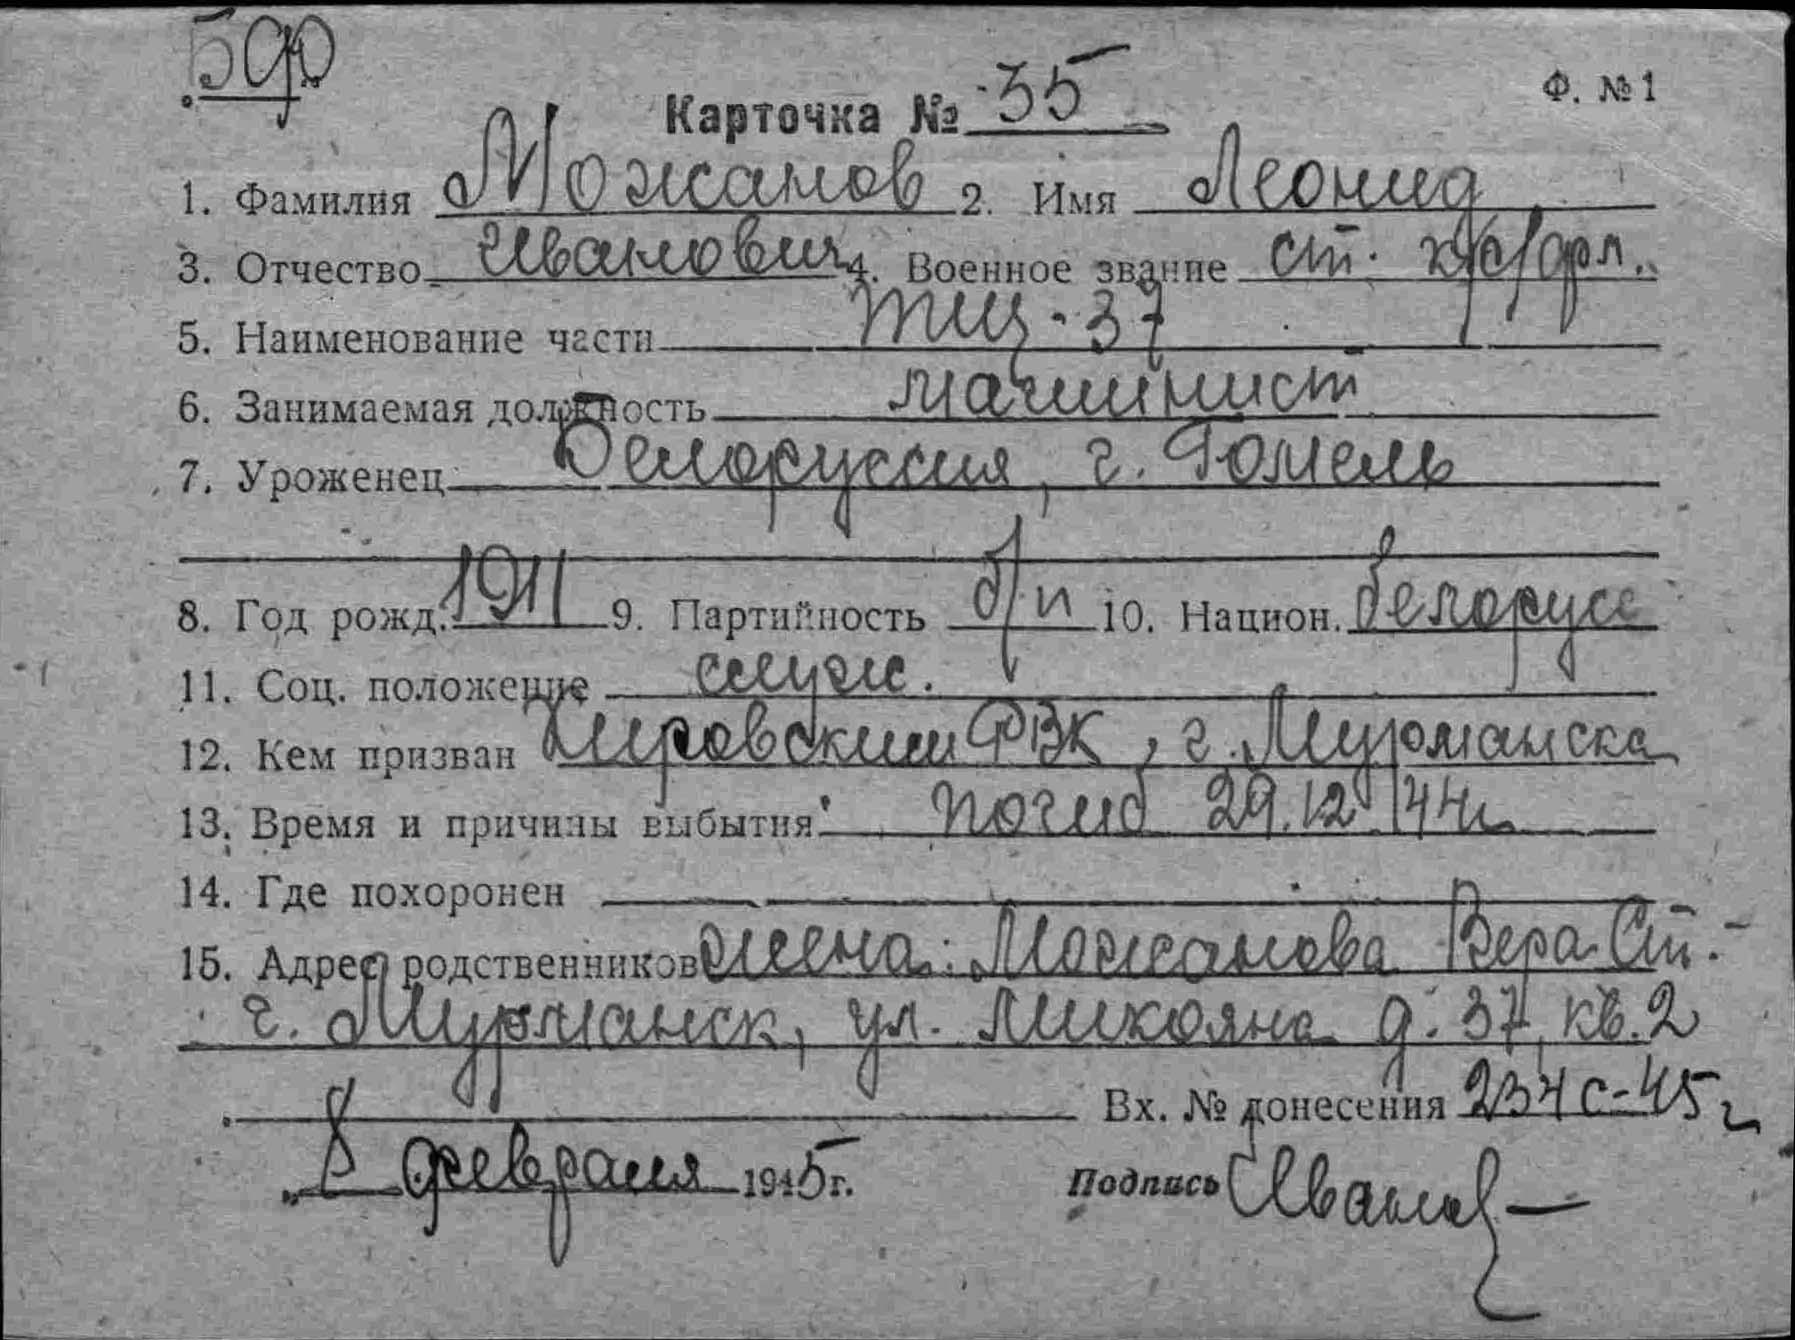 Ф. № 1
Карточка № 35
1. Фамилия Можанов 2. Имя Леонид
3. Отчество Иванович 4. Военное звание ст. кр/фл.
5. Наименование части ТЩ-37
6. Занимаемая должность машинист
7. Уроженец Белоруссия, г. Гомель
8. Год рожд. 1911 9. Партийность б/п 10. Национ. белорусс
11. Соц. положение служ.
12. Кем призван Кировским РВК, г. Мурманска
13. Время и причины выбытия погиб 29.12.44г.
14. Где похоронен
15. Адрес родственников жена: Можанова Вера Ст.
г. Мурманск, ул. Микояна д. 37, кв. 2
Вх. № донесения 234с-45г
8 февраля 1945 г. Подпись Иванов